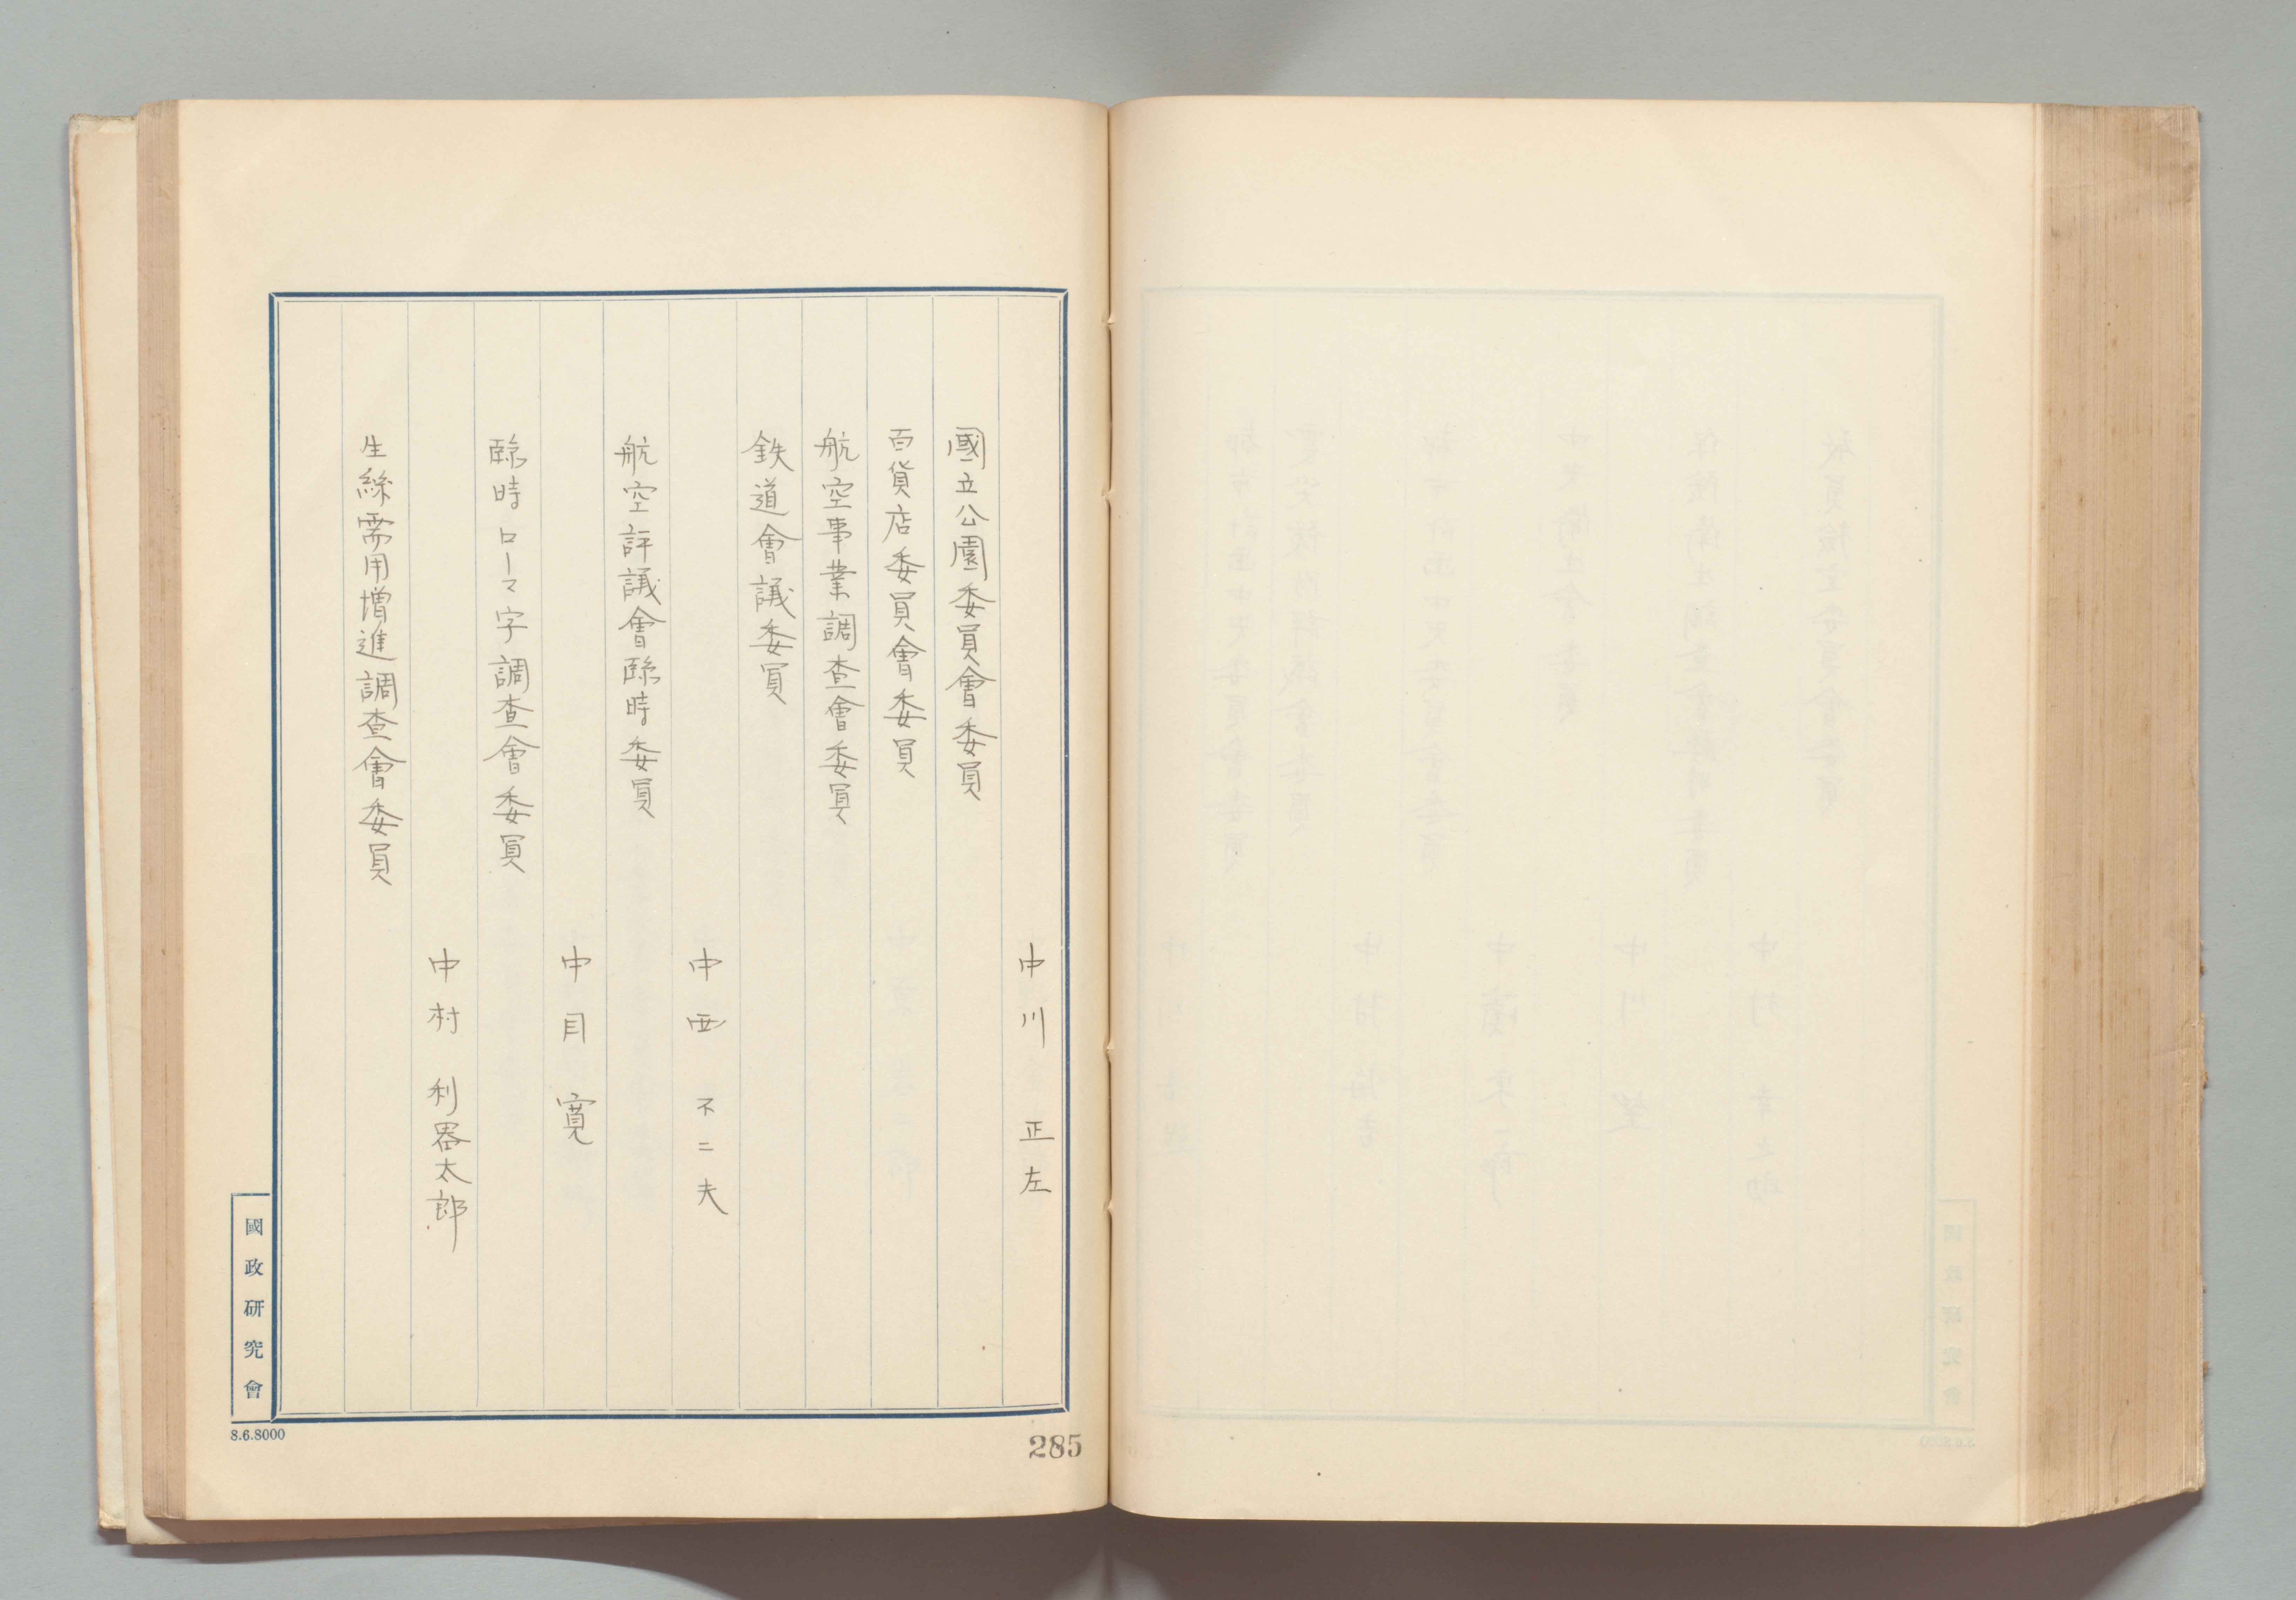 中川 正左
國立公園委員會委員
百貨店委員會委員
航空事業調査會委員
鉄道會議委員
中西 不二夫
航空評議會臨時委員
中目 寛
臨時ローマ字調査會委員
中村 利器太郎
生絲需用増進調査會委員
國政研究會
8.6.8000
285